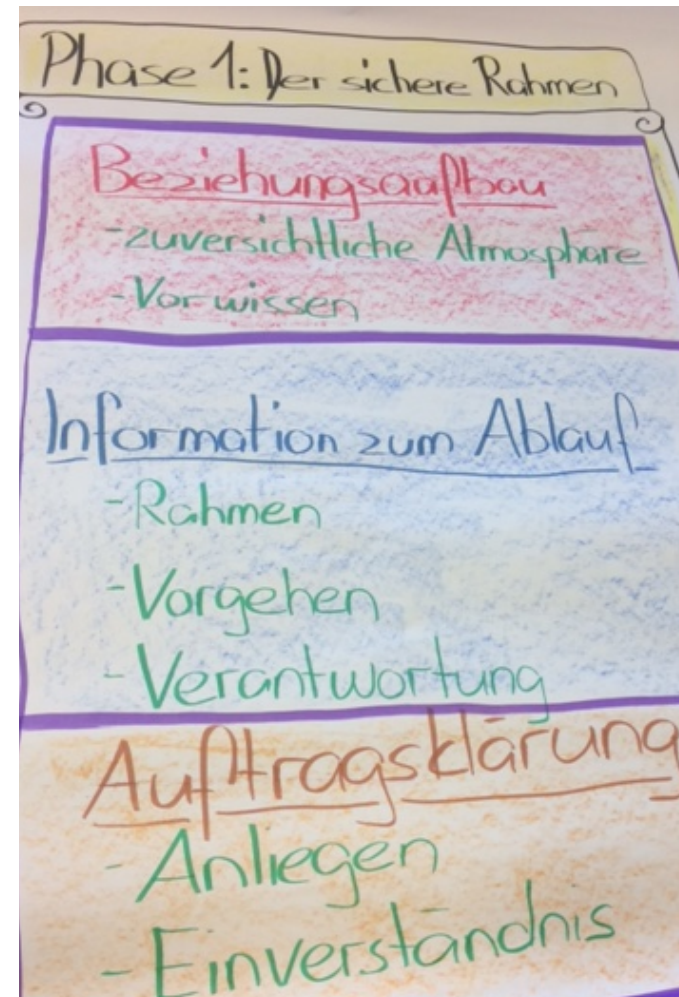 Phase 1: Der sichere Rahmen
Beziehungsaufbau
-zuversichtliche Atmosphäre
-Vorwissen
Information zum Ablauf
-Rahmen
-Vorgehen
-Verantwortung
Auftragsklärung
-Anliegen
-Einverständnis